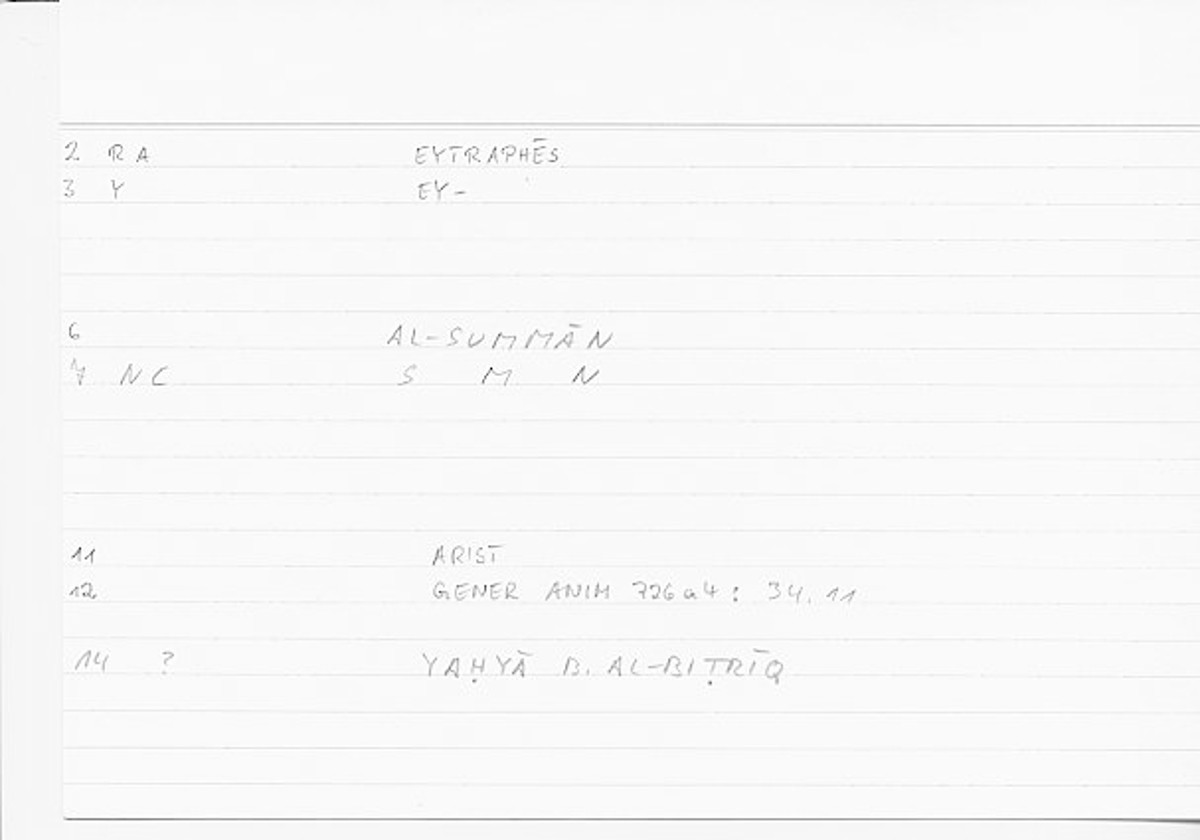 2 RA EYTRAPHĒS
3 Y EY-
6 AL-SUMMĀN
7 NC S M N
11 ARIST
12 GENER ANIM 726a4: 34.11
14 ? YAḤYĀ B. AL-BIṬRĪQ